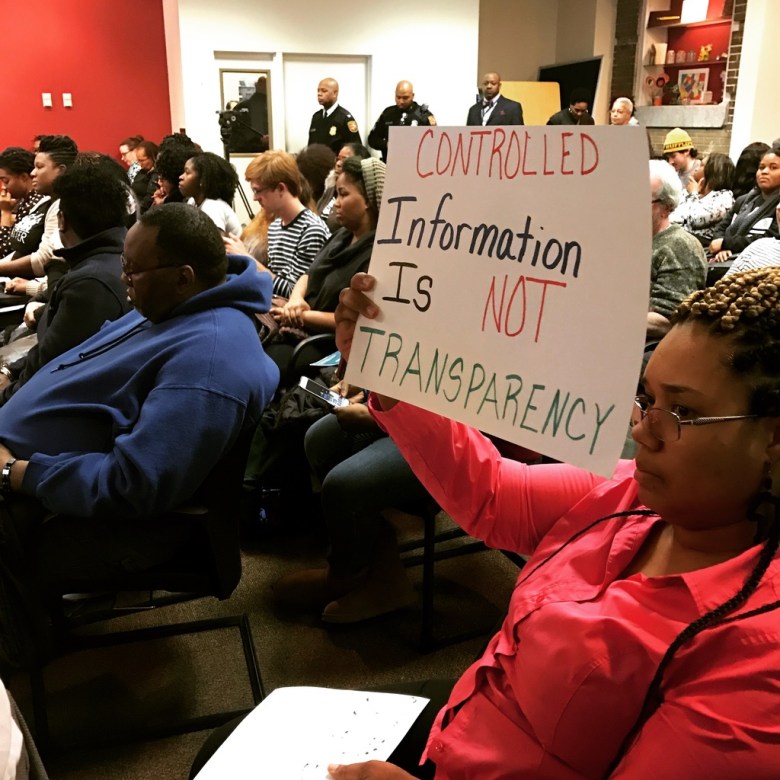 CONTROLLED
Information
Is NOT
TRANSPARENCY